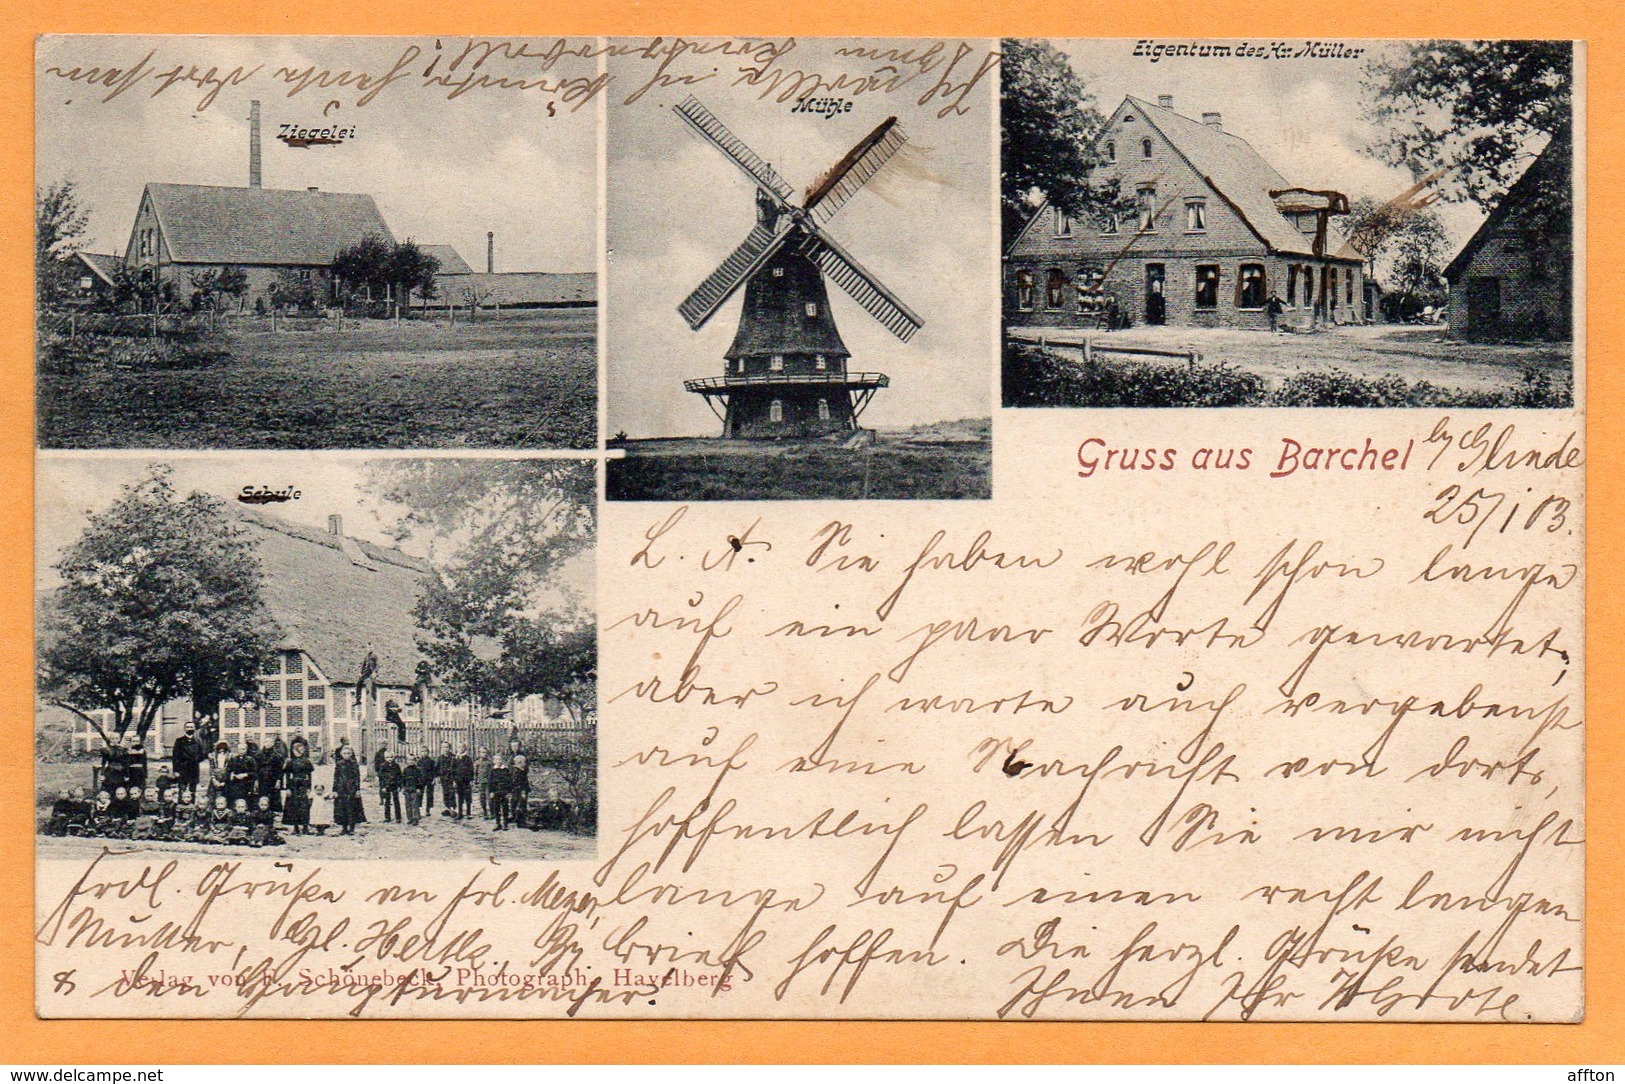 Ich wollte ich
könnte heute dort sein
Ziegelei
Mühle
Eigentum des Hr. Müller
Schule
Gruss aus Barchel
by Glinde
25/1 03.
L. A. Sie haben wohl schon lange
auf ein paar Worte gewartet,
aber ich warte auch vergebenst
auf eine Nachricht von dort,
hoffentlich lassen Sie mir nicht
lange auf einen recht langen
Brief hoffen. Die herzl. Grüße sendet
Ihnen Ihr
Frdl. Grüße an Frl. Meyer,
Mutter,
& den
Verlag von F. Schönebeck, Photograph, Havelberg
www.delcampe.net
affton